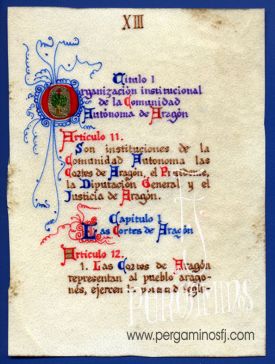 XIII
Título 1
Organización institucional
de la Comunidad
Autónoma de Aragón
Artículo 11.
Son instituciones de la
Comunidad Autonoma las
Cortes de Aragón, el Presidente,
la Diputación General y el
Justicia de Aragón.
Capítulo 1
Las Cortes de Aragón
Artículo 12.
1. Las Cortes de Aragón
representan al pueblo arago-
nés, ejercen la
www.pergaminosfj.com